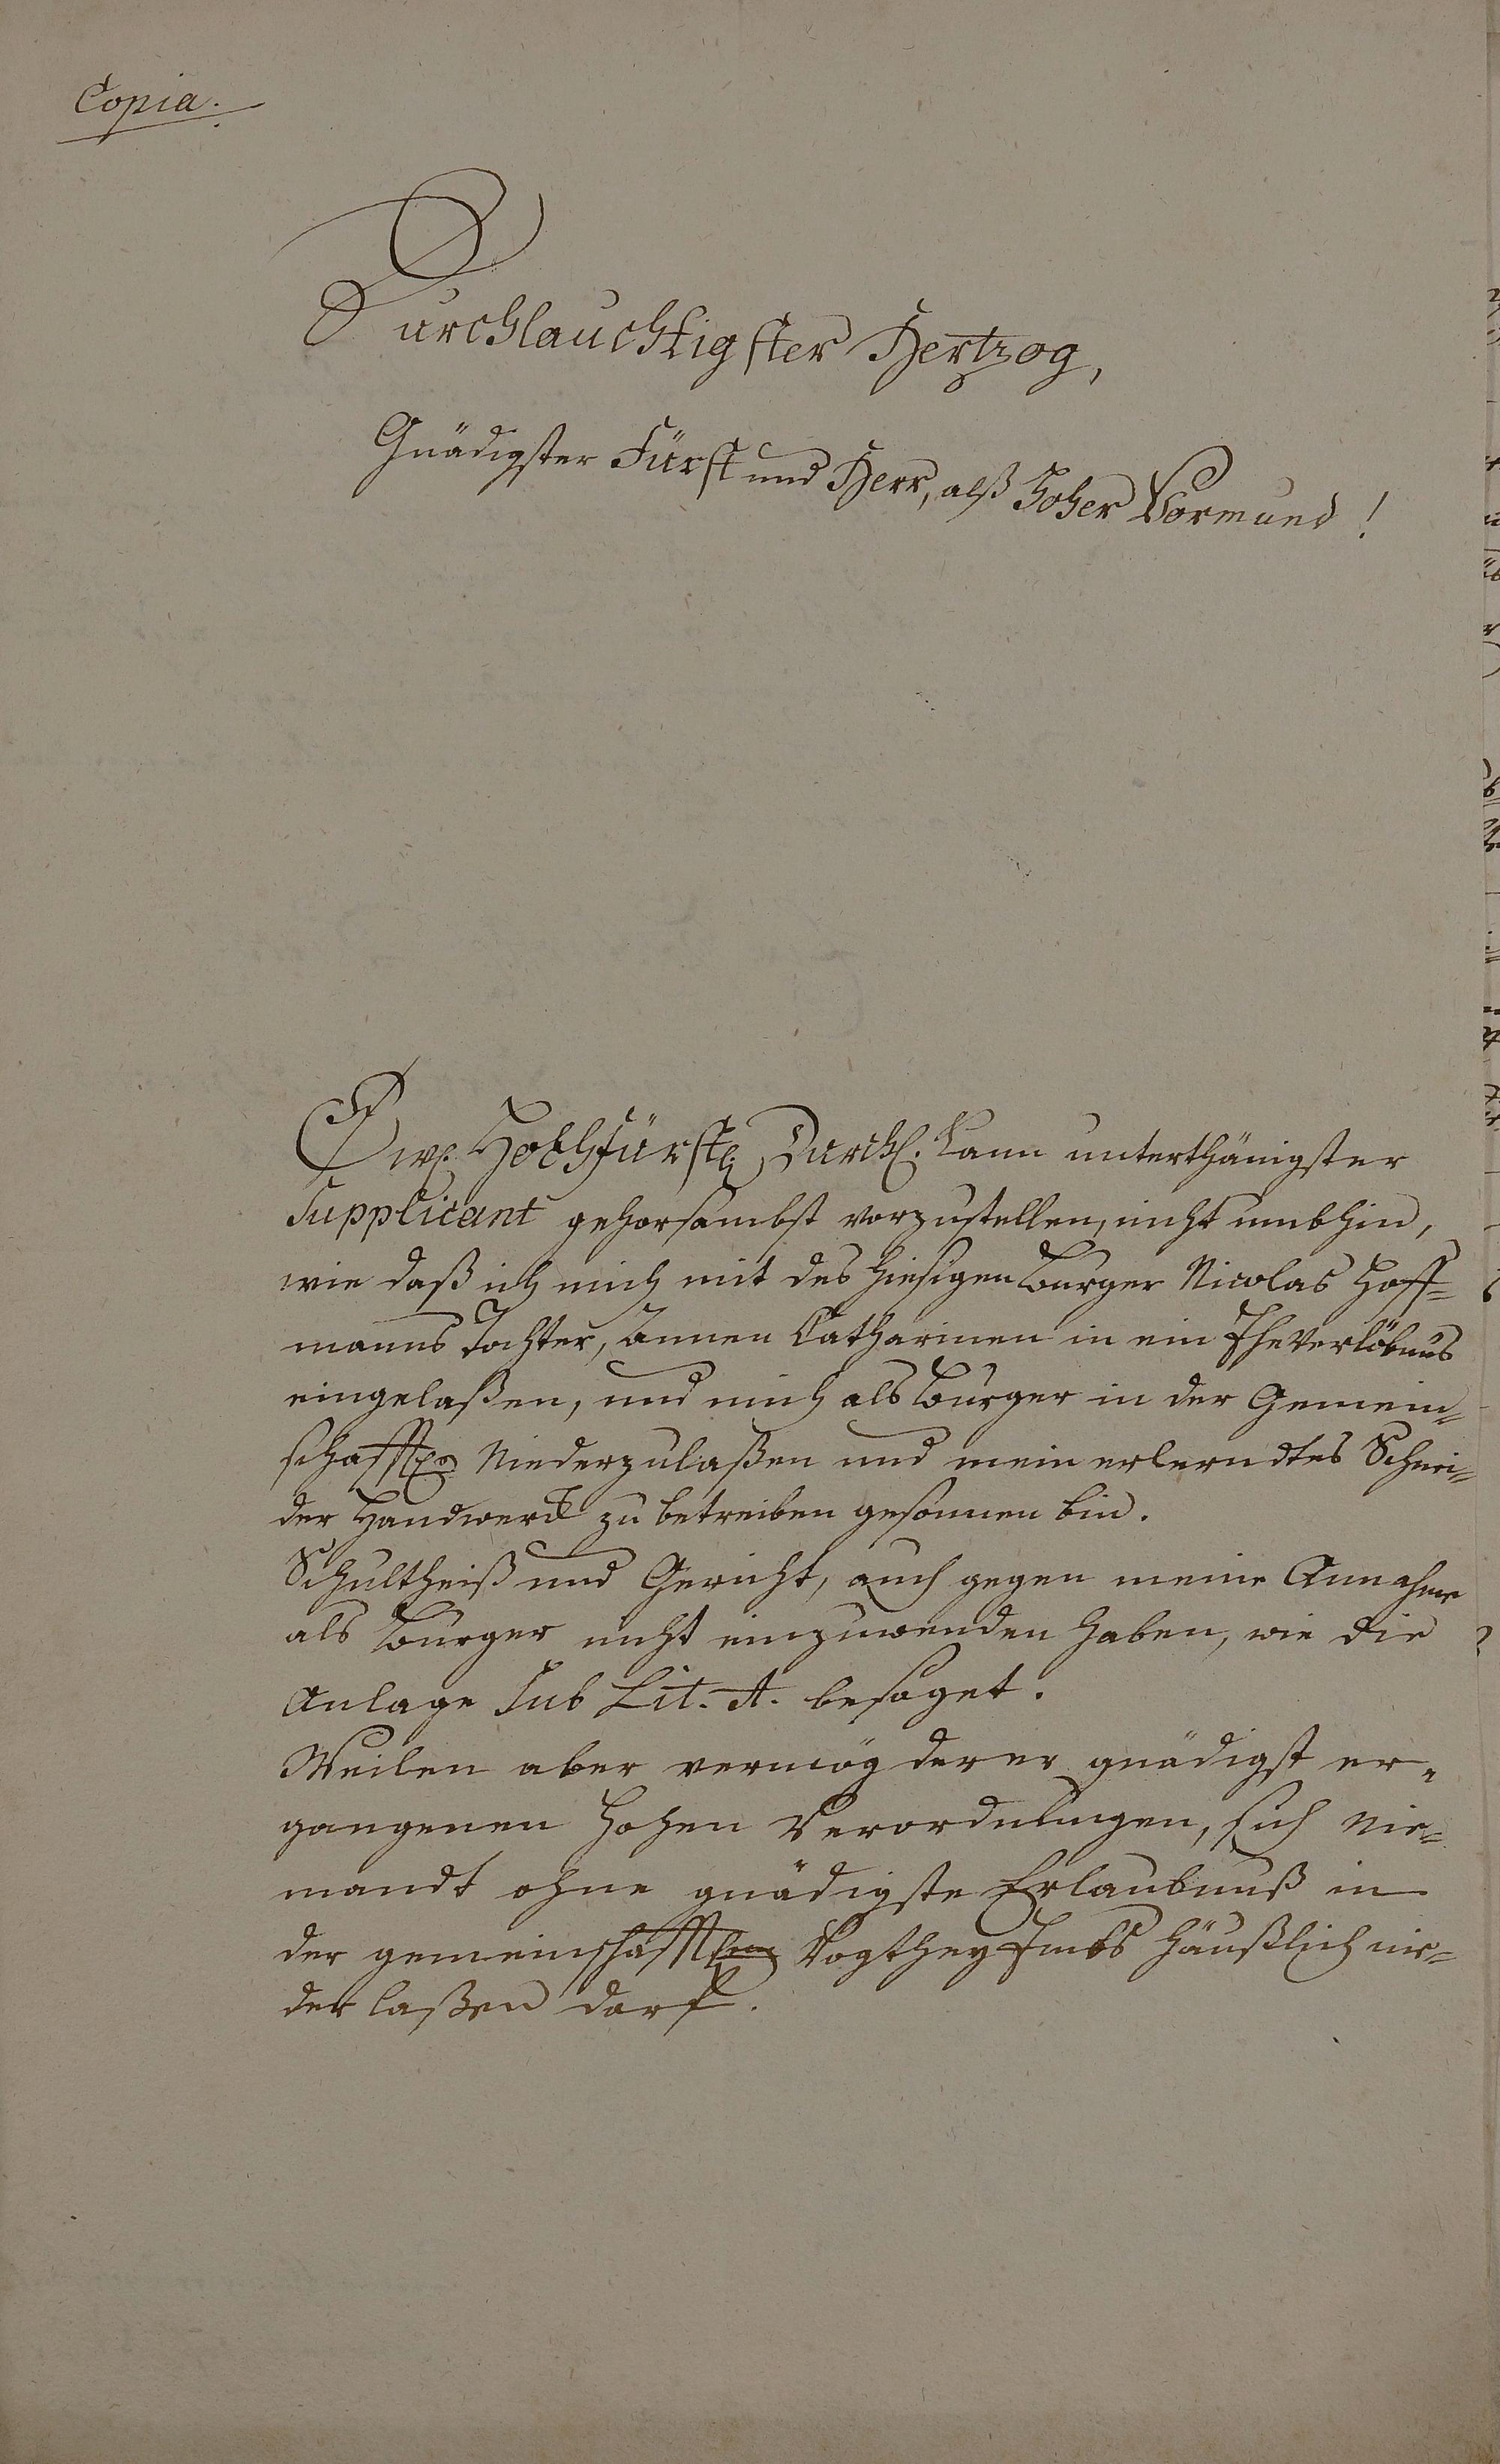 Copia.
Durchlauchtigster Hertzog,
Gnädigster Fürst und Herr, alß hoher Vormund!
Ewr. Hochfürstl. Durchl. kann unterthänigster
Supplicant gehorsambst vorzustellen, nicht umbhin,
wie daß ich mich mit des hiesigen Burger Nicolas Hoff=
manns Tochter, Annen Catharinen in ein Eheverlöbnus
eingelaßen, und mich als Burger in der Gemein=
schafftl. niederzulaßen und mein erlerndtes Schnei=
der Handwerck zu betreiben gesonnen bin.
Schultheiß und Gericht, auch gegen meine Annahme
als Burger nicht einzuwenden haben, wie die
Anlage sub Lit. A. besaget.
Weilen aber vermög derer gnädigst er=
gangenen hohen Verordnungen, sich nie=
mandt ohne gnädigste Erlaubnuß in
der gemeinschafftlichen Vogthey häußlich nie=
der laßen darf.